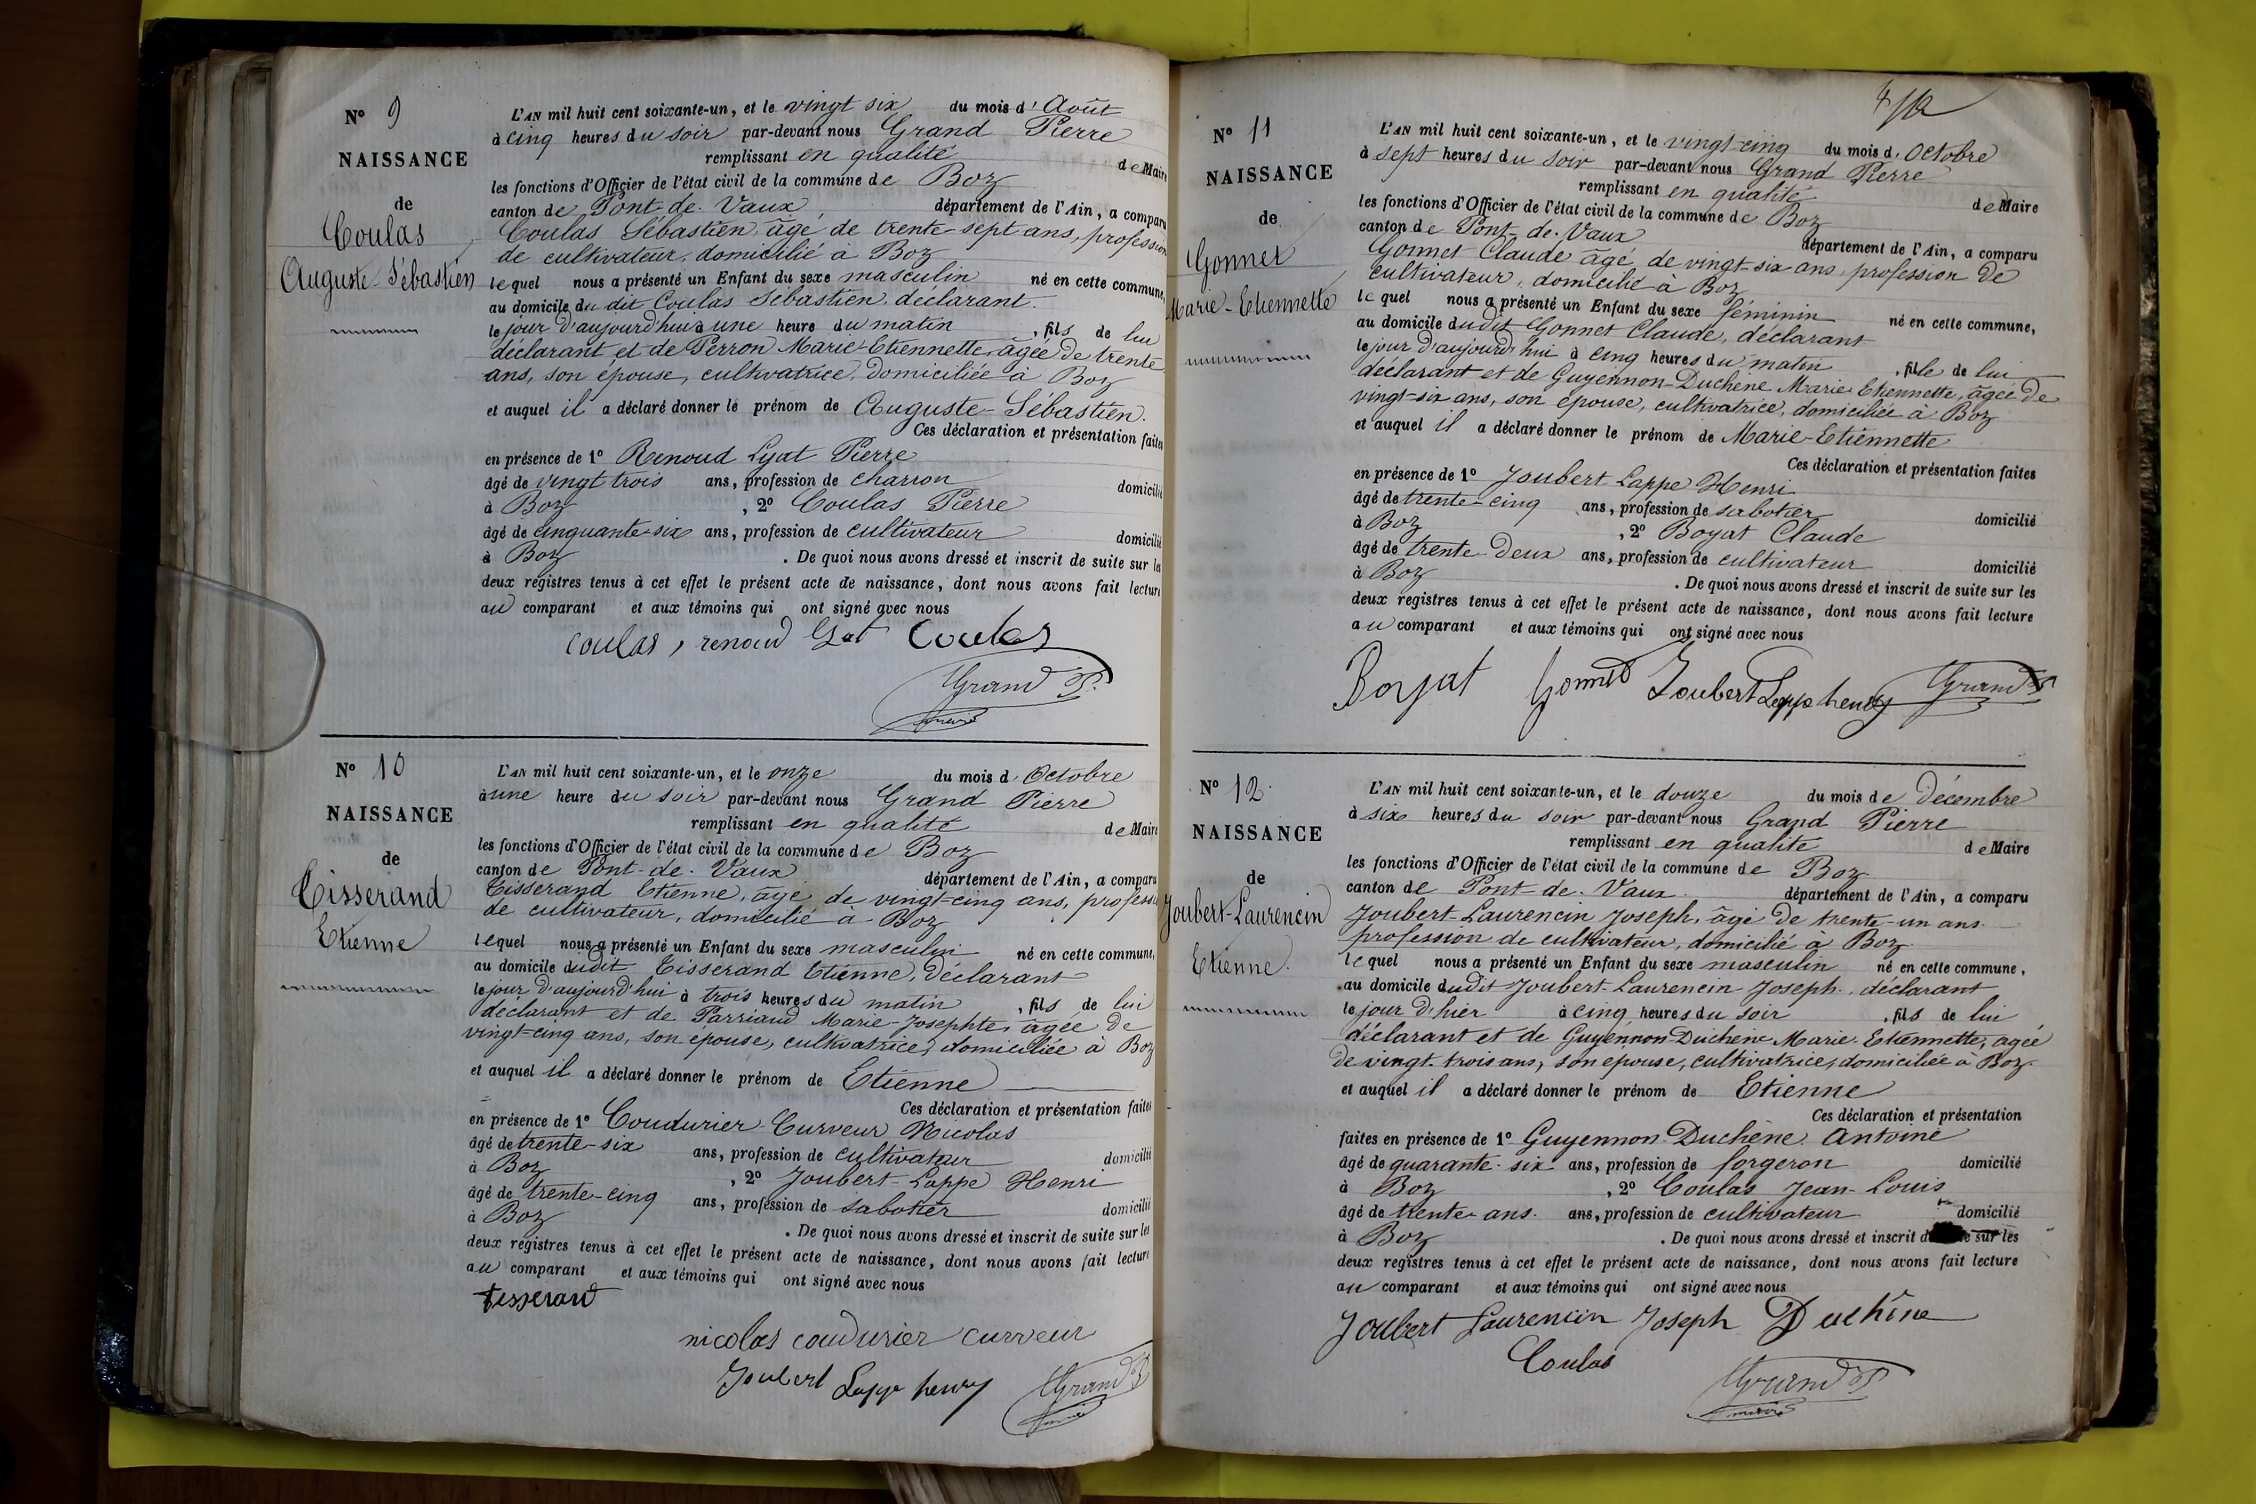 N° 9
NAISSANCE
de
Coulas
Auguste-Sébastien
L'AN mil huit cent soixante-un, et le vingt six du mois d'Août
à cinq heures du soir par-devant nous Grand Pierre
remplissant en qualité de Maire
les fonctions d'Officier de l'état civil de la commune de Boz
canton de Pont-de-Vaux département de l'Ain, a comparu
Coulas Sébastien, âgé de trente-sept ans, profession
de cultivateur, domicilié à Boz
lequel nous a présenté un Enfant du sexe masculin né en cette commune,
au domicile du dit Coulas Sébastien déclarant
le jour d'aujourd'hui à une heure du matin, fils de lui
déclarant et de Perron Marie-Etiennette, âgée de trente
ans, son épouse, cultivatrice, domiciliée à Boz
et auquel il a déclaré donner le prénom de Auguste-Sébastien.
Ces déclaration et présentation faites
en présence de 1° Renoud Lyat Pierre
âgé de vingt trois ans, profession de charron domicilié
à Boz, 2° Coulas Pierre
âgé de cinquante-six ans, profession de cultivateur domicilié
à Boz. De quoi nous avons dressé et inscrit de suite sur les
deux registres tenus à cet effet le présent acte de naissance, dont nous avons fait lecture
au comparant et aux témoins qui ont signé avec nous
coulas, renoud Lyat Coulas
Grand P.
maire
N° 10
NAISSANCE
de
Tisserand
Etienne
L'AN mil huit cent soixante-un, et le onze du mois d'Octobre
à une heure du soir par-devant nous Grand Pierre
remplissant en qualité de Maire
les fonctions d'Officier de l'état civil de la commune de Boz
canton de Pont-de-Vaux département de l'Ain, a comparu
Tisserand Etienne, âgé de vingt-cinq ans, profession
de cultivateur, domicilié à Boz
lequel nous a présenté un Enfant du sexe masculin né en cette commune,
au domicile dudit Tisserand Etienne, déclarant
le jour d'aujourd'hui à trois heures du matin, fils de lui
déclarant et de Parriaud Marie-Josephte, âgée de
vingt-cinq ans, son épouse, cultivatrice, domiciliée à Boz
et auquel il a déclaré donner le prénom de Etienne
Ces déclaration et présentation faites
en présence de 1° Coudurier-Curveur Nicolas
âgé de trente-six ans, profession de cultivateur domicilié
à Boz, 2° Joubert-Lappe Henri
âgé de trente-cinq ans, profession de sabotier domicilié
à Boz. De quoi nous avons dressé et inscrit de suite sur les
deux registres tenus à cet effet le présent acte de naissance, dont nous avons fait lecture
au comparant et aux témoins qui ont signé avec nous
tisserand
nicolas coudurier curveur
Joubert Lappe henry Grand P
maire
N° 11
NAISSANCE
de
Gonnet
Marie-Etiennette
L'AN mil huit cent soixante-un, et le vingt-cinq du mois d'Octobre
à sept heures du soir par-devant nous Grand Pierre
remplissant en qualité de Maire
les fonctions d'Officier de l'état civil de la commune de Boz
canton de Pont-de-Vaux département de l'Ain, a comparu
Gonnet Claude âgé de vingt-six ans, profession de
cultivateur, domicilié à Boz
lequel nous a présenté un Enfant du sexe féminin né en cette commune,
au domicile dudit Gonnet Claude, déclarant
le jour d'aujourd'hui à cinq heures du matin, fille de lui
déclarant et de Guyennon-Duchêne Marie-Etiennette, âgée de
vingt-six ans, son épouse, cultivatrice, domiciliée à Boz
et auquel il a déclaré donner le prénom de Marie-Etiennette
Ces déclaration et présentation faites
en présence de 1° Joubert Lappe Henri
âgé de trente-cinq ans, profession de sabotier domicilié
à Boz, 2° Boyat Claude
âgé de trente-deux ans, profession de cultivateur domicilié
à Boz. De quoi nous avons dressé et inscrit de suite sur les
deux registres tenus à cet effet le présent acte de naissance, dont nous avons fait lecture
au comparant et aux témoins qui ont signé avec nous
Boyat Gonnet Joubert Lappe henry Grand P
N° 12.
NAISSANCE
de
Joubert-Laurencin
Etienne.
L'AN mil huit cent soixante-un, et le douze du mois de décembre
à six heures du soir par-devant nous Grand Pierre
remplissant en qualité de Maire
les fonctions d'Officier de l'état civil de la commune de Boz
canton de Pont-de-Vaux département de l'Ain, a comparu
Joubert-Laurencin Joseph, âgé de trente-un ans
profession de cultivateur, domicilié à Boz
lequel nous a présenté un Enfant du sexe masculin né en cette commune,
au domicile dudit Joubert-Laurencin Joseph, déclarant
le jour d'hier à cinq heures du soir, fils de lui
déclarant et de Guyennon-Duchêne Marie-Etiennette, âgée
de vingt-trois ans, son épouse, cultivatrice, domiciliée à Boz.
et auquel il a déclaré donner le prénom de Etienne
Ces déclaration et présentation
faites en présence de 1° Guyennon-Duchêne Antoine
âgé de quarante-six ans, profession de forgeron domicilié
à Boz, 2° Coulas Jean-Louis
âgé de trente ans. ans, profession de cultivateur domicilié
à Boz. De quoi nous avons dressé et inscrit sur les
deux registres tenus à cet effet le présent acte de naissance, dont nous avons fait lecture
au comparant et aux témoins qui ont signé avec nous
Joubert Laurencin Joseph Duchêne
Coulas Grand P
maire